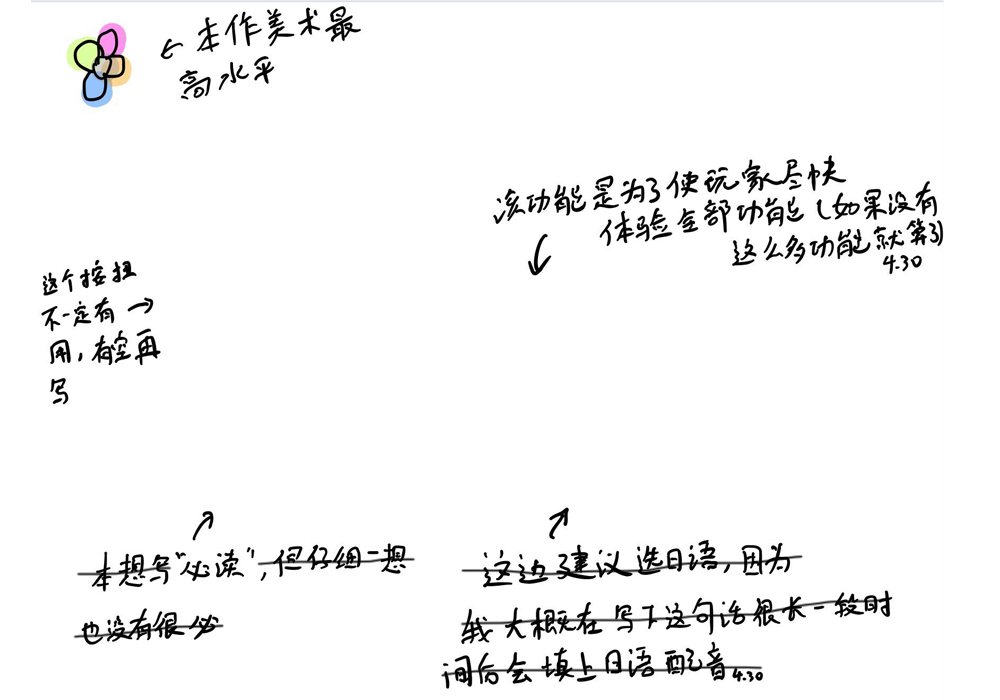 ←本作美术最
高水平
该功能是为了使玩家尽快
体验全部功能(如果没有
这么多功能就算了)
4.30
这个按扭
不一定有→
用,有空再
写
本想写"必读",但仔细一想
也没有很必
这边建议选日语,因为
我大概在写下这句话很长一段时
间后会填上日语配音4.30